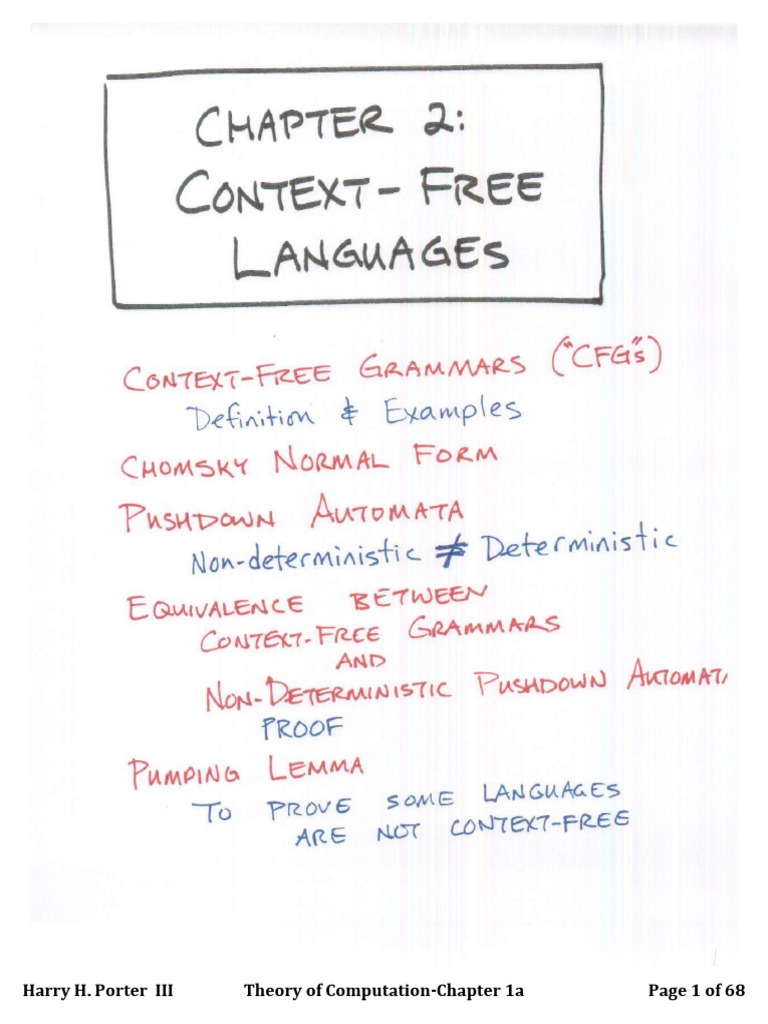 CHAPTER 2:
CONTEXT-FREE
LANGUAGES
CONTEXT-FREE GRAMMARS ("CFG"s)
Definition & Examples
CHOMSKY NORMAL FORM
PUSHDOWN AUTOMATA
Non-deterministic ≠ Deterministic
EQUIVALENCE BETWEEN
CONTEXT-FREE GRAMMARS
AND
NON-DETERMINISTIC PUSHDOWN AUTOMAT
PROOF
PUMPING LEMMA
TO PROVE SOME LANGUAGES
ARE NOT CONTEXT-FREE
Harry H. Porter III Theory of Computation-Chapter 1a Page 1 of 68